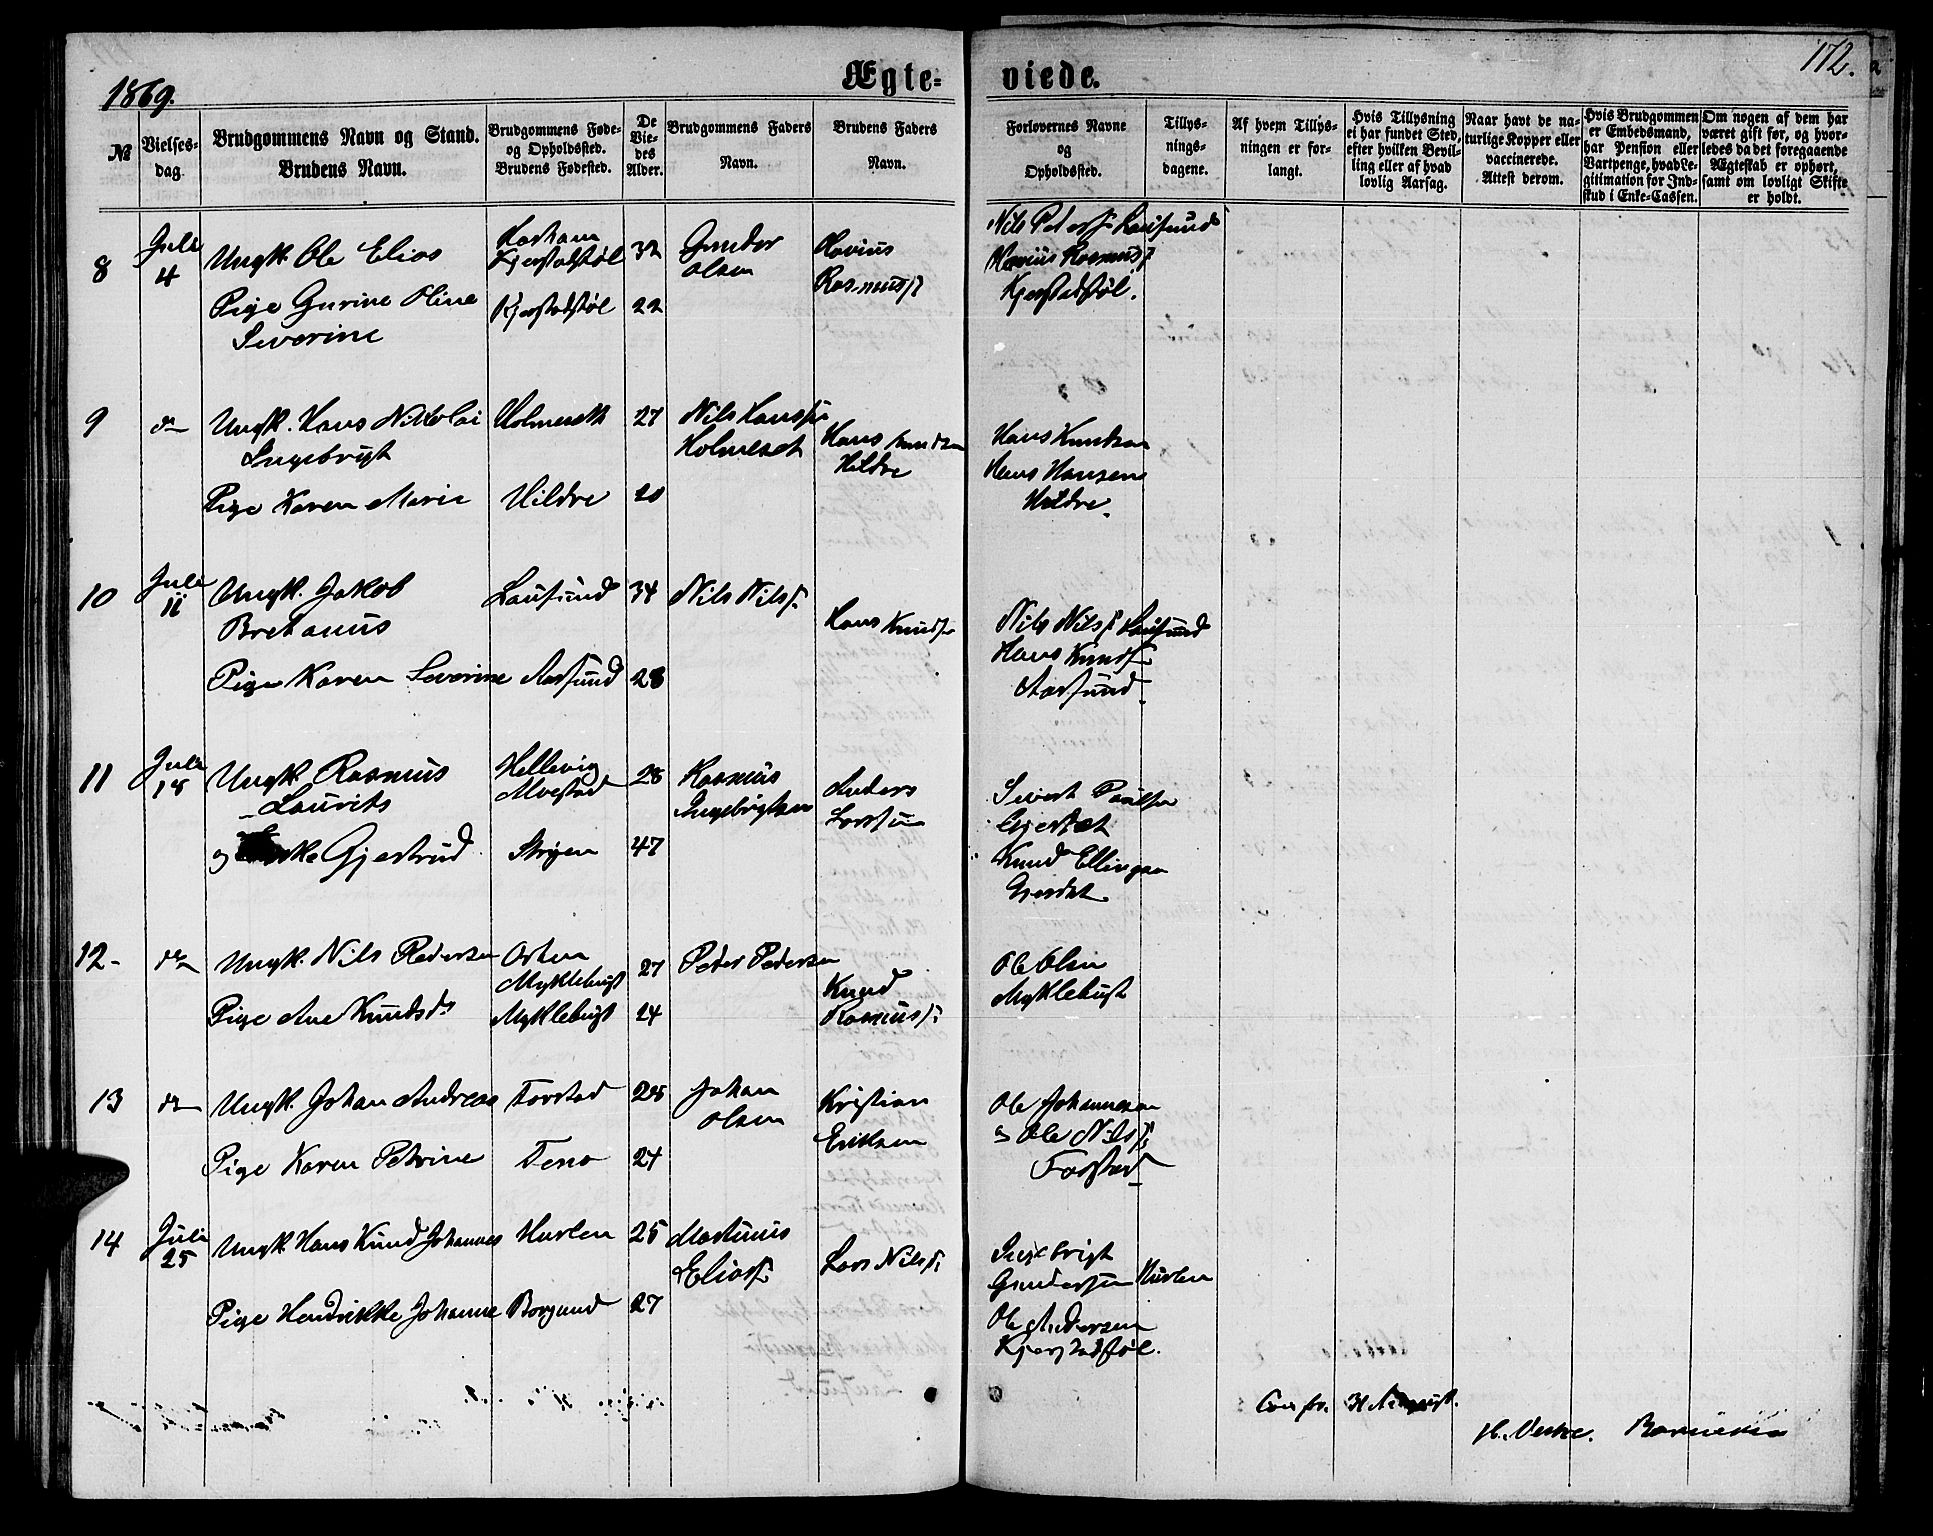 1869.
Ægte-
viede.
172.
№
Vielses-
dag.
Brudgommens Navn og Stand.
Brudens Navn.
Brudgommens Føde-
og Opholdssted.
Brudens Fødested.
De
Vie-
des
Alder.
Brudgommens Faders
Navn.
Brudens Faders
Navn.
Forlovernes Navne
og
Opholdssted.
Tillys-
nings-
dagene.
Af hvem Tillys-
ningen er for-
langt.
Hvis Tillysning
ei har fundet Sted,
efter hvilken Bevil-
ling eller af hvad
lovlig Aarsag.
Naar havt de na-
turlige Kopper eller
vaccinerede.
Attest derom.
Hvis Brudgommen
er Embedsmand,
har Pension eller
Vartpenge, hvad Le-
gitimation for Ind-
skud i Enke-Cassen.
Om nogen af dem har
været gift før, og hvor-
ledes da det foregaaende
Ægteskab er ophørt,
samt om lovligt Skifte
er holdt.
8
Juli
4
Ungk. Ole Elias
Pige Gurine Oline
Severine
Kjerstadstøl
Kjerstadstøl
32
22
Gunder
Olsen
Rasmuss.
Nils Peters.
Rasmuss.
Kjerstadstøl.
9
do
Ungk. Hans Nikolai
Ingebrigt
Pige Karen Marie
Hildre
27
20
Nils Hanss.
Holmeset
Hans Knudsen
Hildre
Hans Knudsen
Hans Hansen
Hildre.
10
Juli
11
Ungk. Jakob
Pige Karen Severine
Laufsund
Aarsund
34
28
Nils Nilss.
Hans Knuds.
Nils Nilss. Laufsund
Hans Knuds.
Aarsund.
11
Juli
18
Ungk. Rasmus
Laurits
og Enke Gjertrud
Hellevig
28
47
Rasmus
Ingebrigtsen
Anders
Sivert
Knud Ellingsen
12-
do
Ungk. Nils Pedersen
Pige Ane Knudsdr
Myklebust
Myklebust
27
24
Peder Pedersen
Knud
Rasmuss.
Ole Olsen
Myklebust
13
do
Ungk. Johan Andreas
Pige Karen Petrine
24
Johan
Olsen
Kristian
Eriksen
Ole Johannesen
og Ole Nilss.
14
Juli
25
Ungk. Hans Knud Johannes
Pige Hendrikke Johanne
Hurlen
Borgund
25
27
Martinus
Eliass.
Lars Nilss.
Ingebrigt
Gundersen Hurlen
Ole Andersen
Kjerstadstøl.